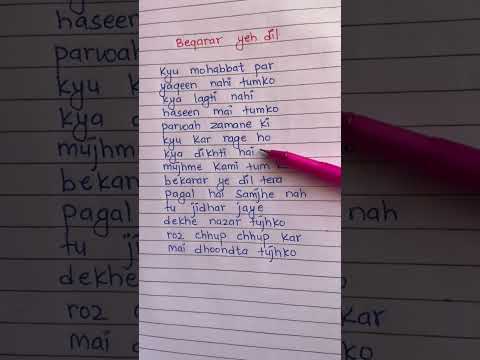 Beqarar yeh dil
kyu mohabbat par
yaqeen nahi tumko
kya lagti nahi
haseen mai tumko
parwah zamane ki
kyu kar rage ho
kya dikhti hai
mujhme kami tum
bekarar ye dil tera
pagal hai samjhe nah
tu jidhar jaye
dekhe nazar tujhko
roz chhup chhup kar
mai dhoondta tujhko